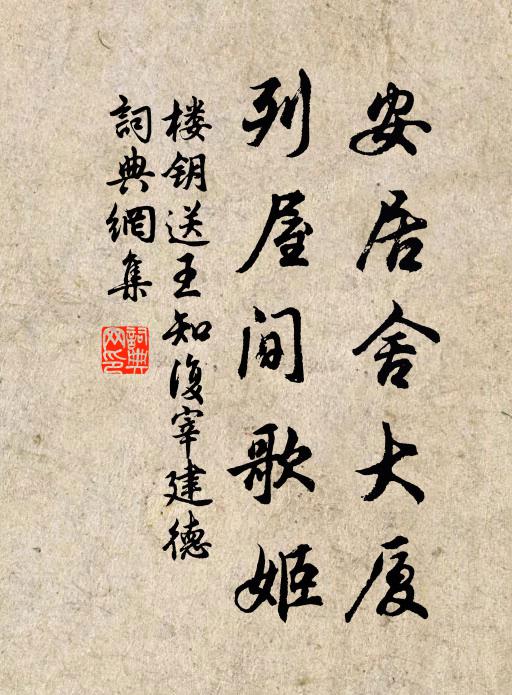 安居舍大厦
列屋间歌姬
楼钥送王知復宰建德
詞典網集
詞典网印